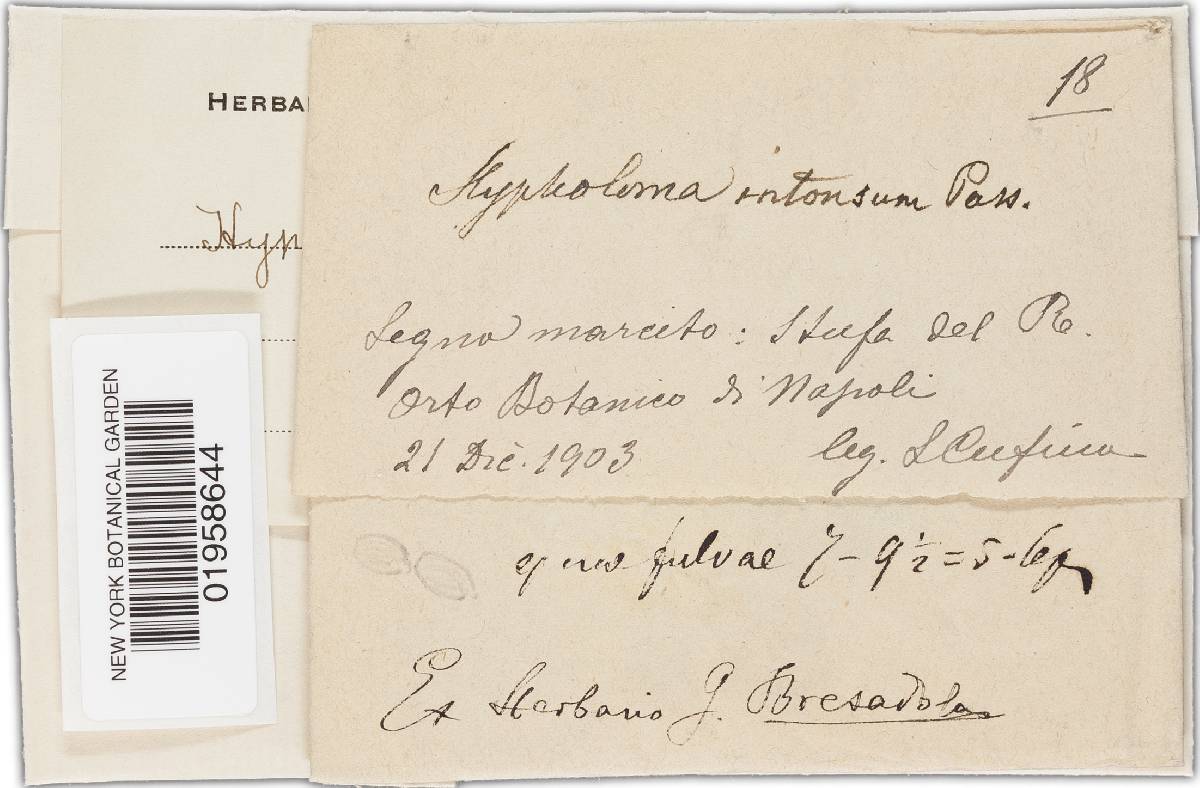 18
Hypholoma intonsum Pass.
Segno marcito: Stufa del R.
Orto Botanico di Napoli
21 Dic. 1903 leg. L Cufino
fulvae 7-9½=5-6
Ex Herbario G. Bresadola
HERBA
Hyp
NEW YORK BOTANICAL GARDEN
01958644